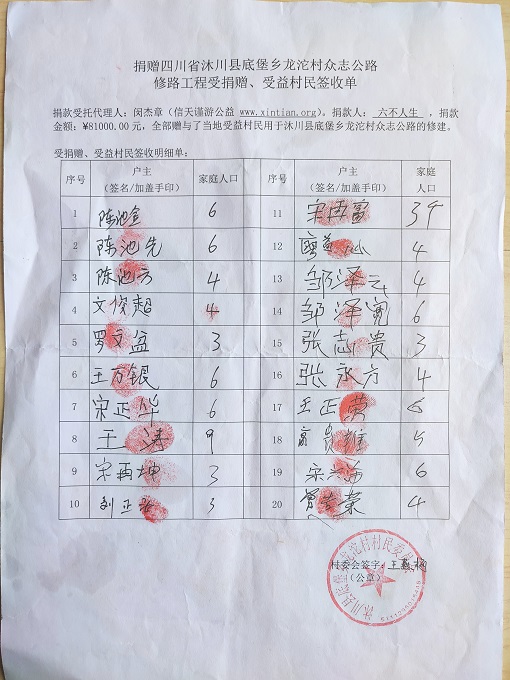 捐赠四川省沐川县底堡乡龙沱村众志公路
修路工程受捐赠、受益村民签收单
捐款受托代理人：闵杰章（信天谨游公益 www.xintian.org）。捐款人： 六不人生 ，捐款
金额：¥81000.00元，全部赠与了当地受益村民用于沐川县底堡乡龙沱村众志公路的修建。
受捐赠、受益村民签收明细单：
序号 户主（签名/加盖手印） 家庭人口 序号 户主（签名/加盖手印） 家庭人口
1 陈池金 6 11 宋再富
2 陈池先 6 12 4
3 陈池方 4 13 邹泽云 4
4 文俊超 4 14 邹泽宽 6
5 罗文益 3 15 张志贵 3
6 王万银 6 16 张永方 4
7 宋正华 6 17 王正英
8 王涛 9 18
9 宋再坤 3 19 6
10 刘正 3 20 4
村委会签字：王
（公章）